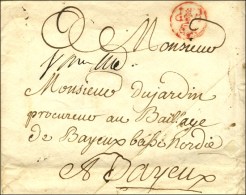 Monsieur
Monsieur dujardin
procureur au Bailliage
de Bayeux basse Nordie
A Bayeux